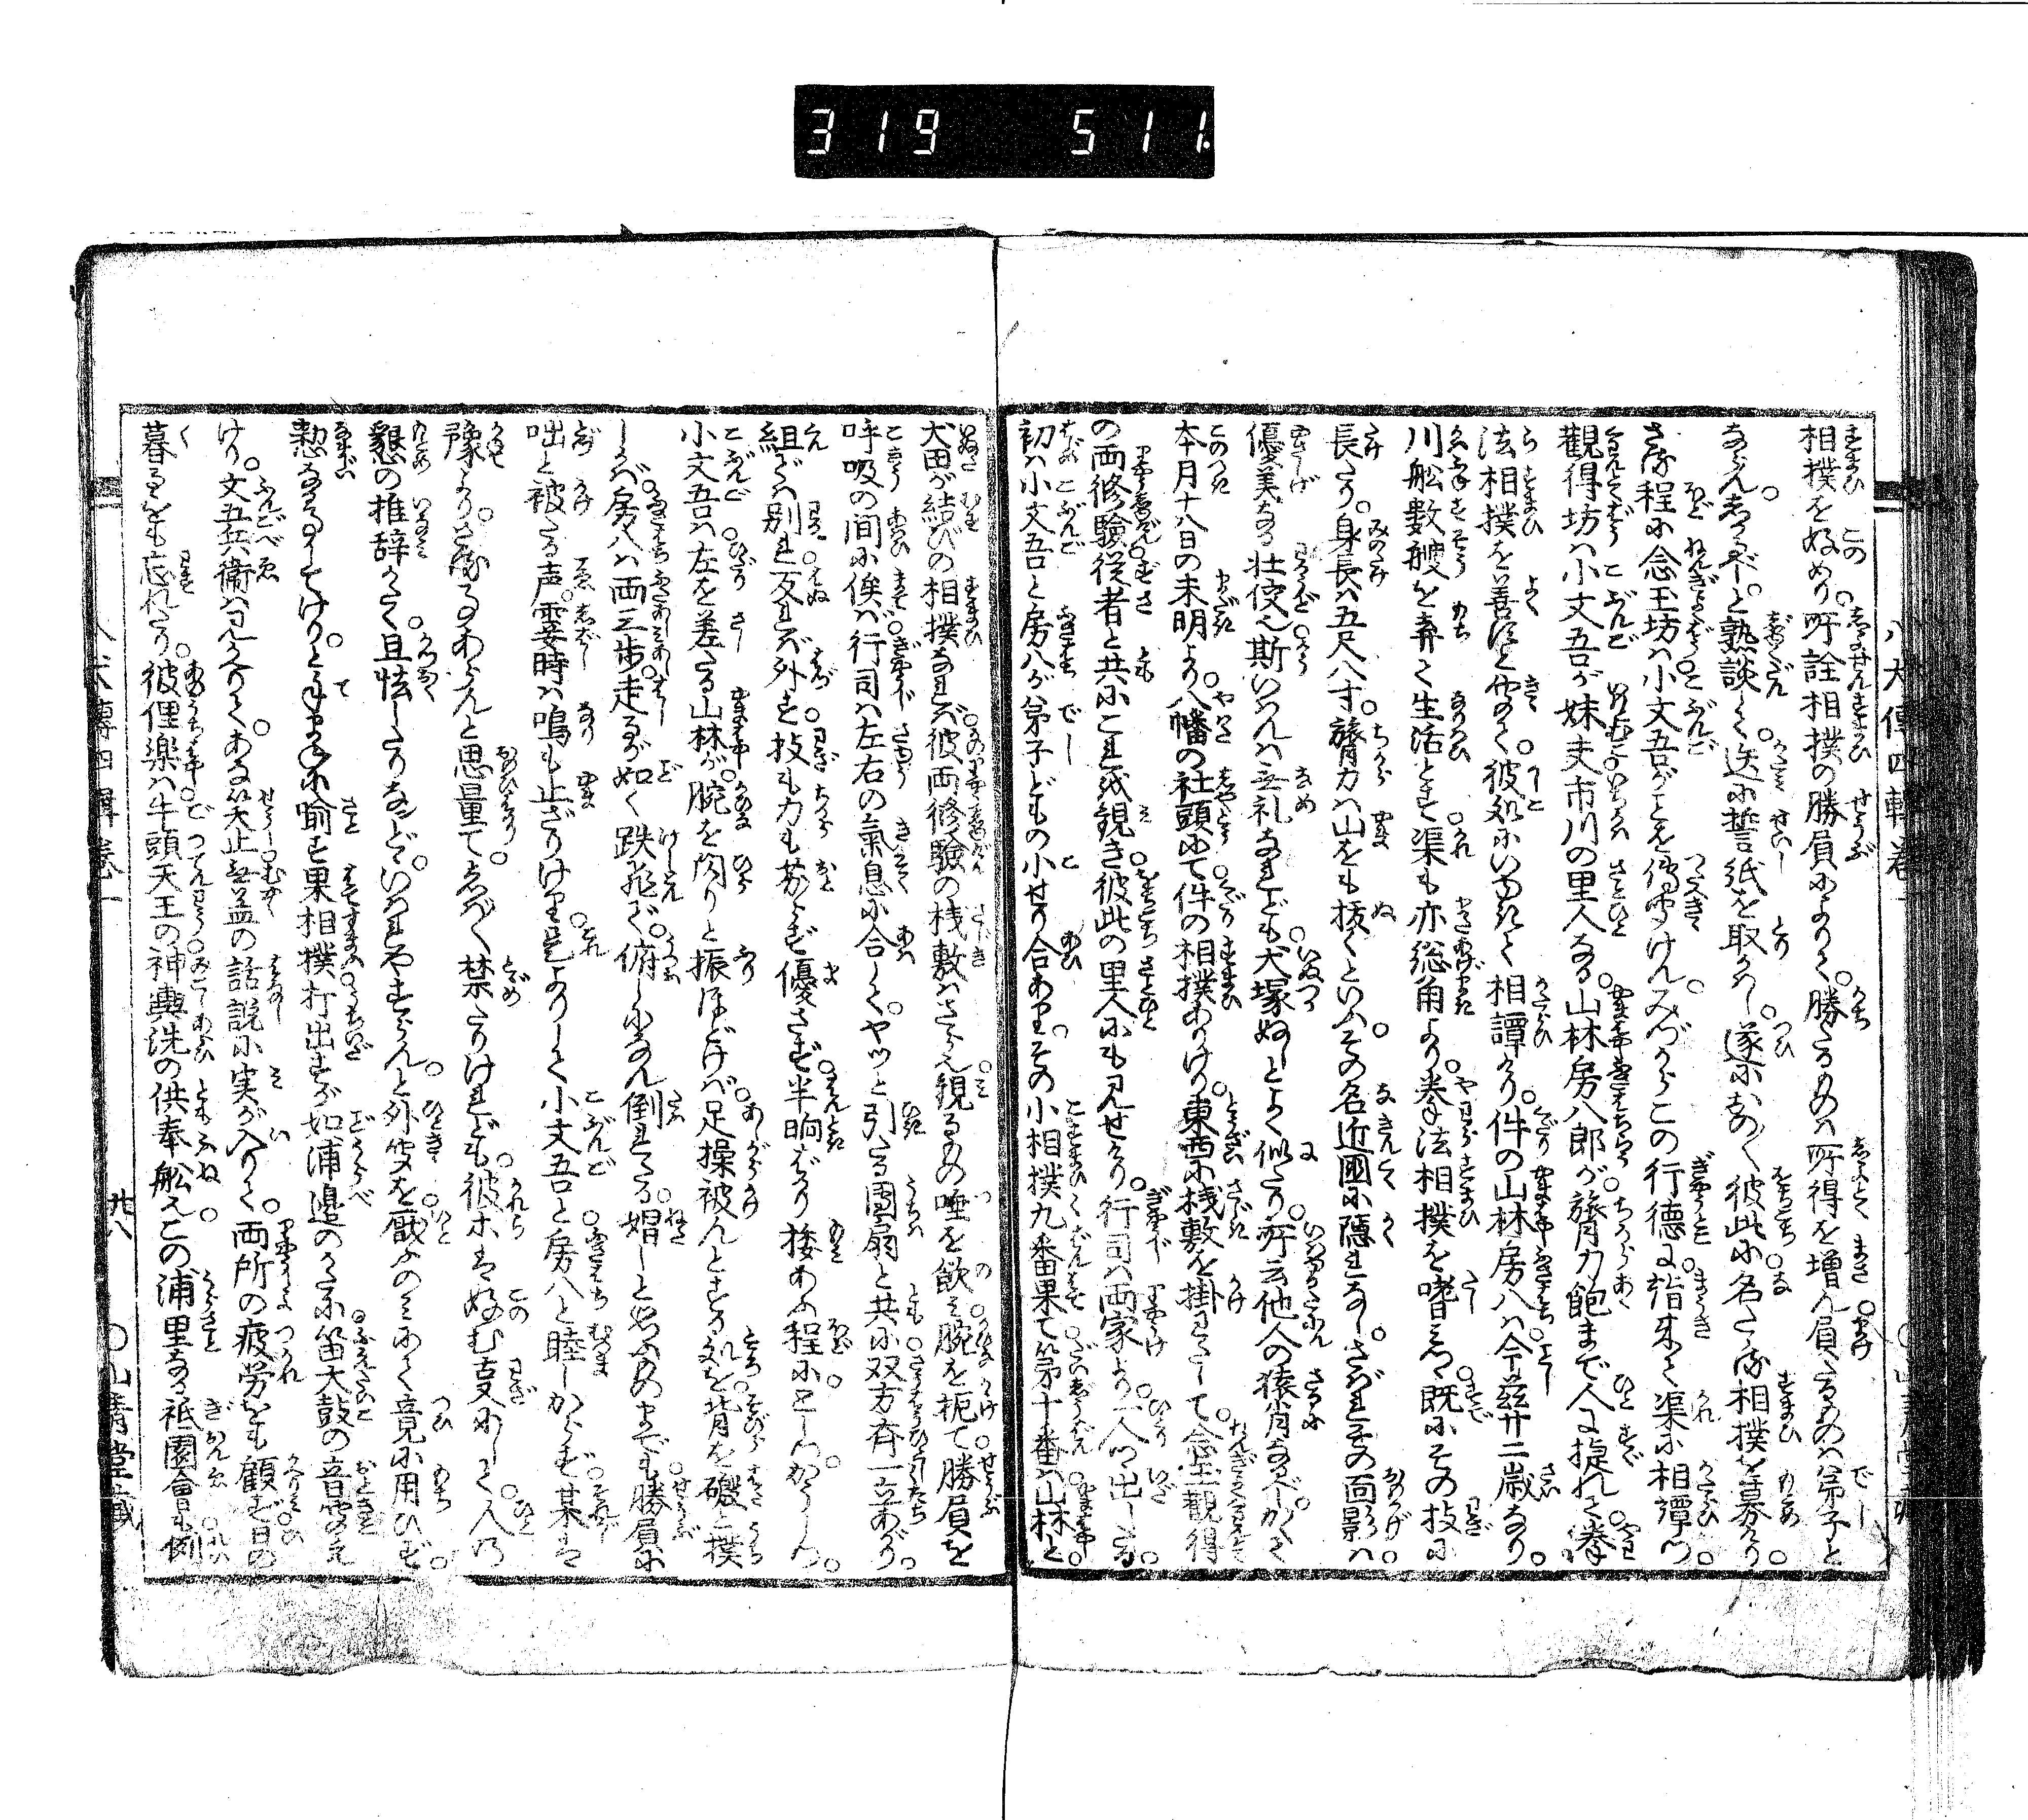 319 511.
八犬傳四輯卷一
相撲を好めり。所詮相撲の勝負によりて。勝たるものは所得を増ん。負たるものは弟子と
ならん。しかるべしと熟談し。送に誓紙を取かはし。遂におなじく彼此に名たゝる相撲を募けり
さる程に念玉坊は小文吾がことを傳聞けん。みづからこの行徳に詣来て渠に相譚ひつ。
觀得坊は小文吾が妹夫市川の里人なる。山林房八郎が。膂力飽まで人に捷れて。拳
法相撲を善すと聞て。彼処にいゆきて相譚けり。件の山林房八は今茲廿二歳なり。
川舩數艘を弄て生活とす。渠も亦総角より。拳法相撲を嗜みつ。既にその技に
長たり。身長は五尺八寸。膂力は山をも抜くといふ。その名近國に隱れなし。さればその面影は。
優美なる壮佼也。斯いはんは無礼なれども。犬塚ぬしとよく似たり。所云他人の猿肖なるべし。かくて
本月十八日の未明より。八幡の社頭にて。件の相撲ありけり。東西に桟敷を掛わたして。念玉觀得
の両修驗。従者と共にこれを観き。彼此の里人にも見せけり。行司は両家より。一人づゝ出しる。
初は小文吾と房八が弟子どもの小せり合あり。その小相撲九番果て。第十番は山林と。
犬田が結びの相撲なれば。彼両修驗の桟敷はさら也。観るもの唾を飲み。腕を扼て。勝負を
呼吸の間に俟ば。行司は左右の氣息に合して。ヤツと引たる團扇と共に。双方齊一立あがり。
組では別れ。反れば外す。技も力も劣らず優さず。半晌ばかり挑あふ程に。とりつかうつ。
小文吾は左を差たる山林が。腕を閃りと振ほどけば。足操被んとする処を。背を礑と撲
しかば。房八は両三歩走るが如く跌飛で。俯しになん倒れたる。媢しと思ふものまでも。勝負に
咄と被たる声。霎時は鳴も止ざりけり。是よりして小文吾と。房八と睦しからず。某は
豫より。さることあらんと思量て。ふかく禁たりけれども。彼ホは好む支にして。人の
懇の推辞がたく。且怯したりなどゝ。いはれやすらんと。外聞を厭ふのみにて。竟に用ひず。
愸なることしてけり。と手まねに喩す。果相撲打出すが如。浦邊のかたに笛大鼓の音聞え
けり。文五兵衛は見かへりて。あな笑止。無益の話説に実が入りて。両所の疲労をも顧ず。日の
暮るをも忘れたり。彼俚楽は。牛頭天王の神輿洗の供奉舩也。この浦里なる祗園會は。例
八犬傳四輯卷一
廿八
〇山青堂藏